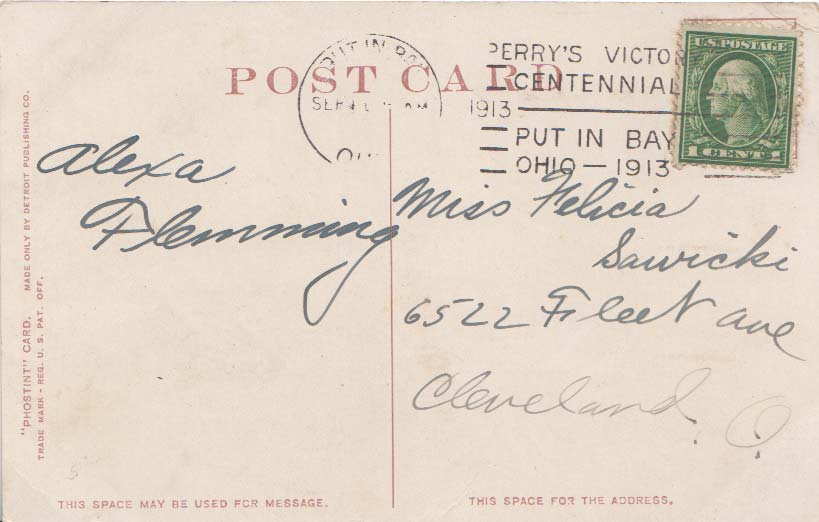 POST CARD
PUT IN BAY
SEP
1913
PERRY'S VICTOR
CENTENNIAL
PUT IN BAY
OHIO — 1913
U.S. POSTAGE
1 CENT 1
Alexa
Flemming
Miss Felicia
Sawicki
6522 Fleet ave
Cleveland. O.
"PHOSTINT" CARD. MADE ONLY BY DETROIT PUBLISHING CO.
TRADE MARK - REG. U. S. PAT. OFF.
THIS SPACE MAY BE USED FOR MESSAGE.
THIS SPACE FOR THE ADDRESS.